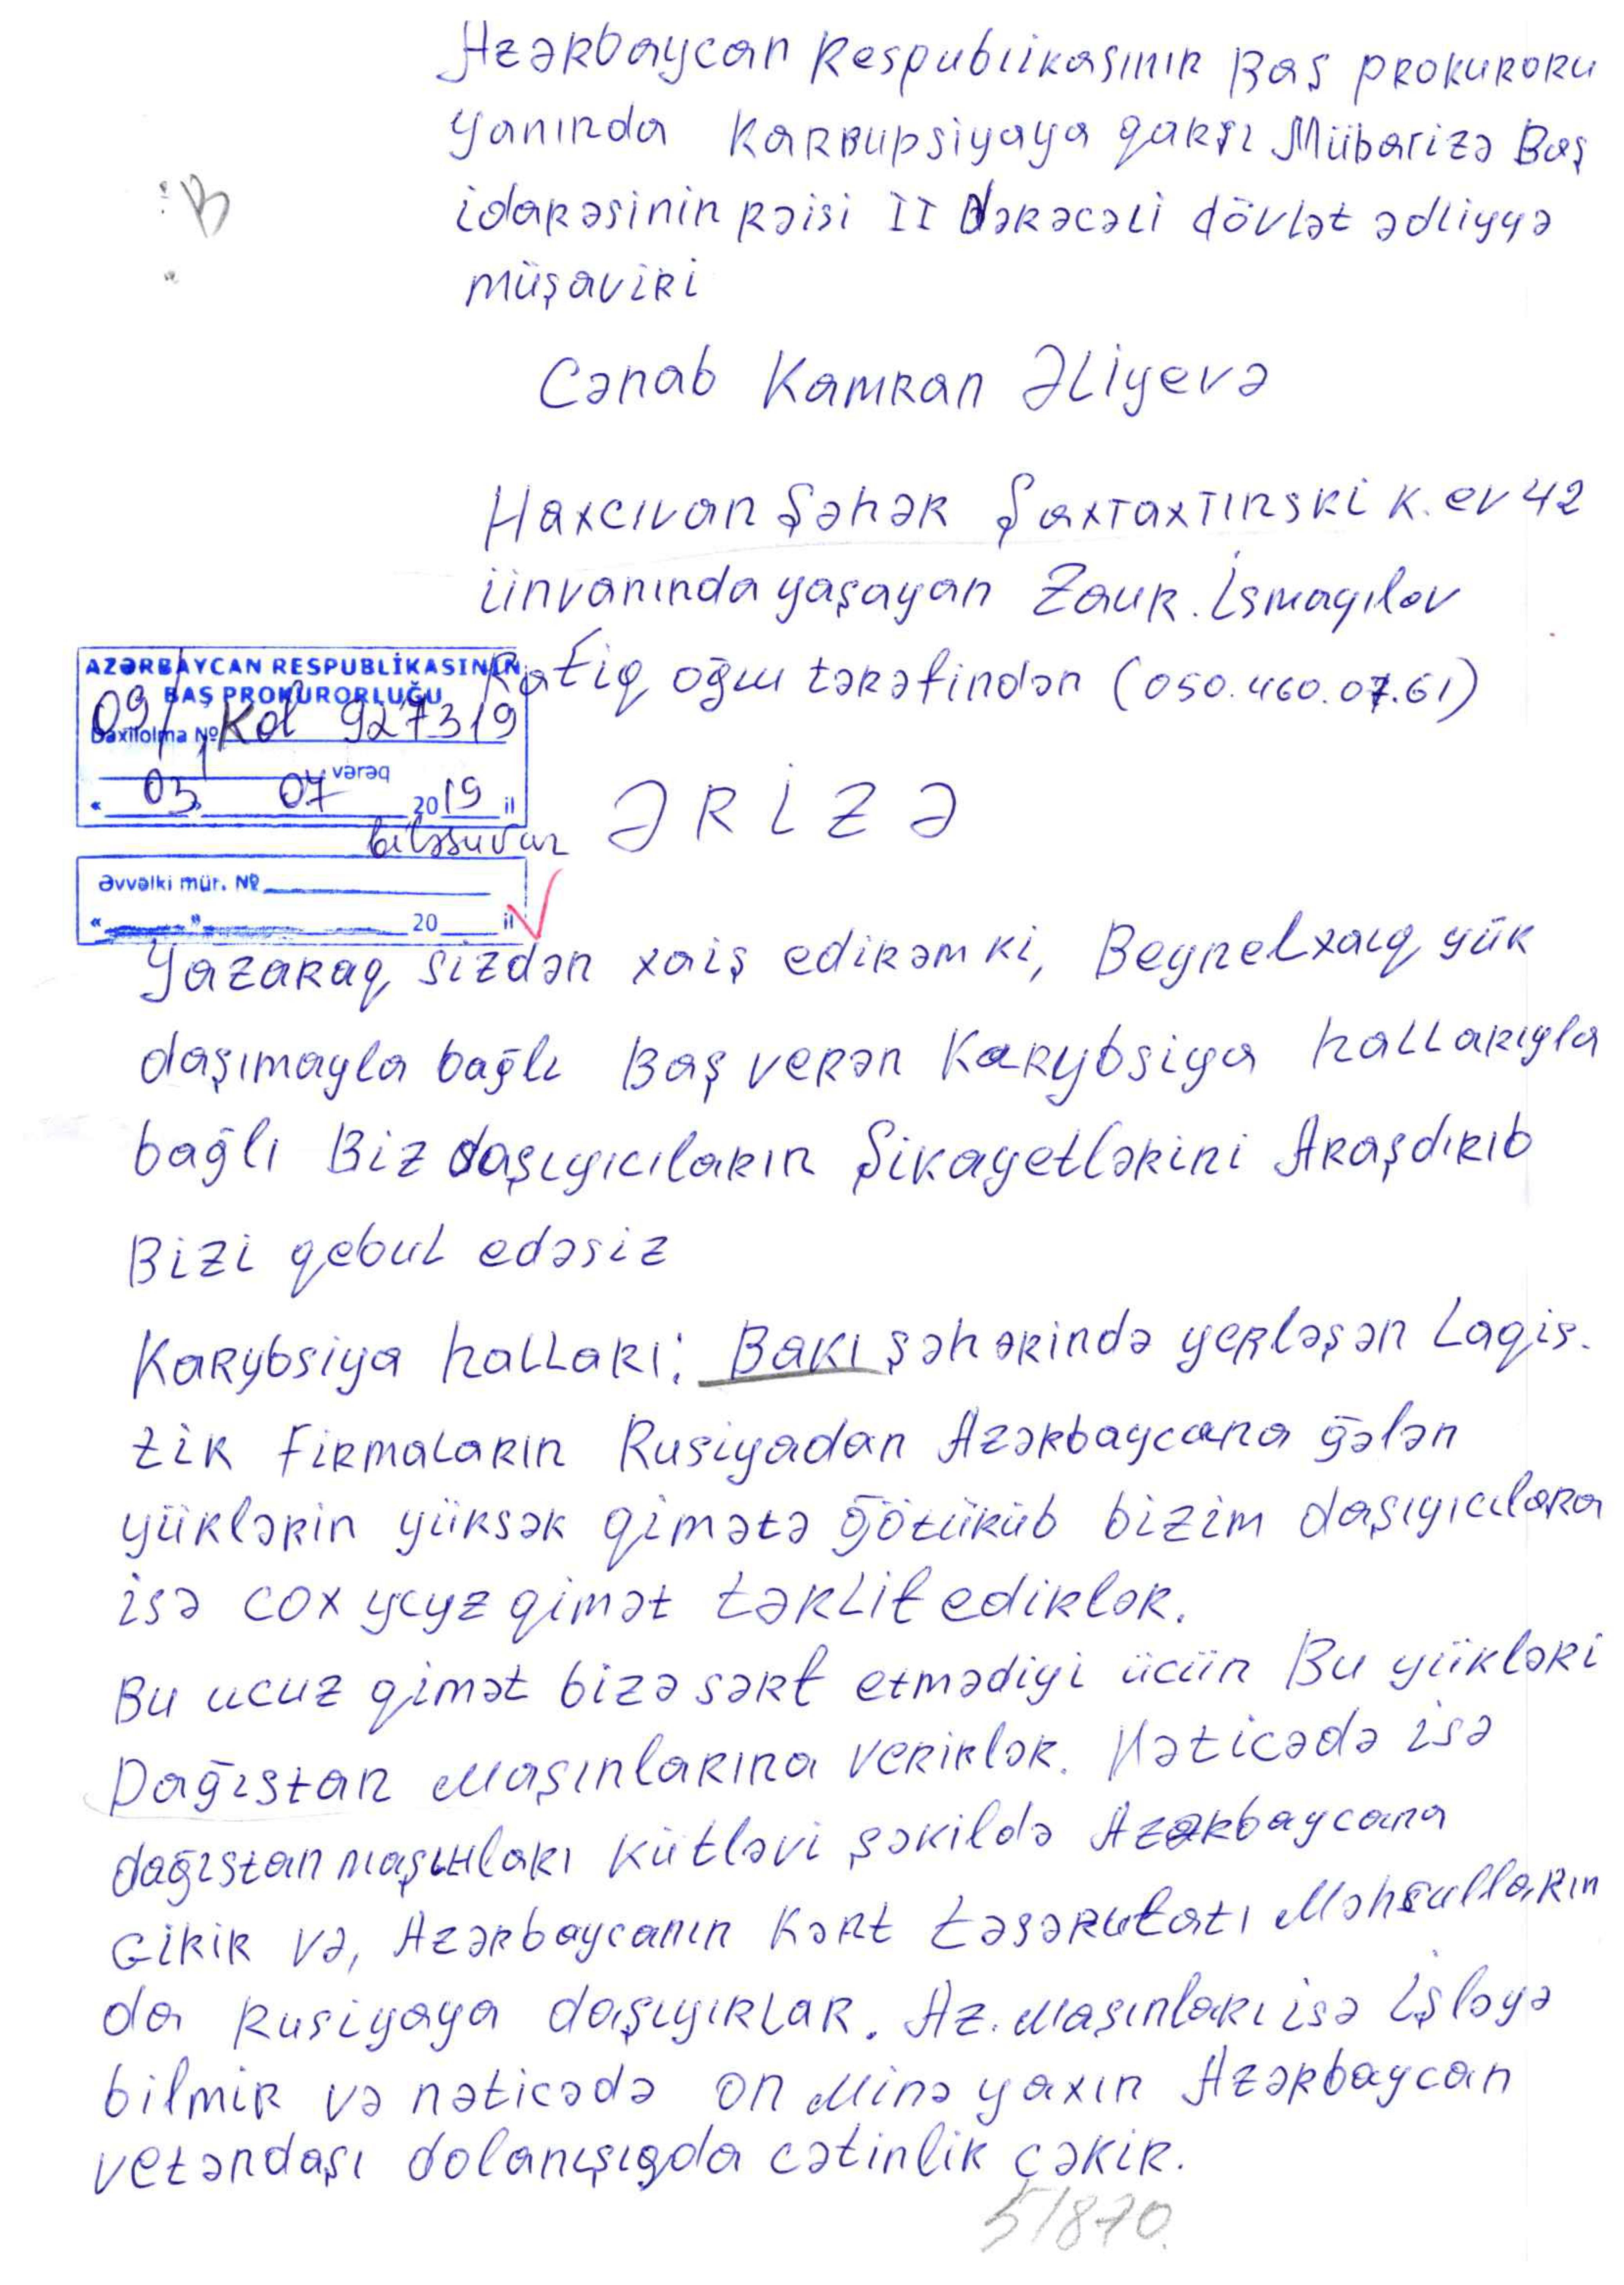 Azərbaycan Respublikasının Baş prokuroru
yanında Karrupsiyaya qarşı Mübarizə Baş
idarəsinin rəisi II dərəcəli dövlət ədliyyə
müşaviri
B
Cənab Kamran Əliyevə
Naxcıvan Şəhər Şaxtaxtınski k. ev 42
ünvanında yaşayan Zaur. İsmayılov
Rafiq oğlu tərəfindən (050.460.07.61)
AZƏRBAYCAN RESPUBLİKASININ
BAŞ PROKURORLUĞU
Daxilolma № 09/ Kol 927319
vərəq
« 03 » 07 2019 il
biləsuvar
ƏRİZƏ
Əvvəlki mür. №
« » 20 il
Yazaraq sizdən xaiş edirəm ki, Beynelxalq yük
daşımayla bağlı Baş verən Karybsiya hallarıyla
bağlı Biz daşıyıcıların Şikayetlərini Araşdırıb
Bizi qebul edəsiz
Karybsiya halları: Bakı şəhərində yerləşən Laqis.
tik firmaların Rusiyadan Azərbaycana gələn
yüklərin yüksək qimətə götürüb bizim daşıyıcılara
isə cox ycyz qimət təklif edirlər.
Bu ucuz qimət bizə sərf etmədiyi ücün Bu yükləri
Dağıstan Maşınlarına verirlər. Nəticədə isə
dağıstan maşınları kütləvi şəkildə Azərbaycana
Girir və, Azərbaycanın kənt təsərufatı Məhsulların
da Rusiyaya daşıyırlar. Az. Maşınları isə işləyə
bilmir və nəticədə on Minə yaxın Azərbaycan
vetəndaşı dolanışıqda cətinlik çəkir.
51870.